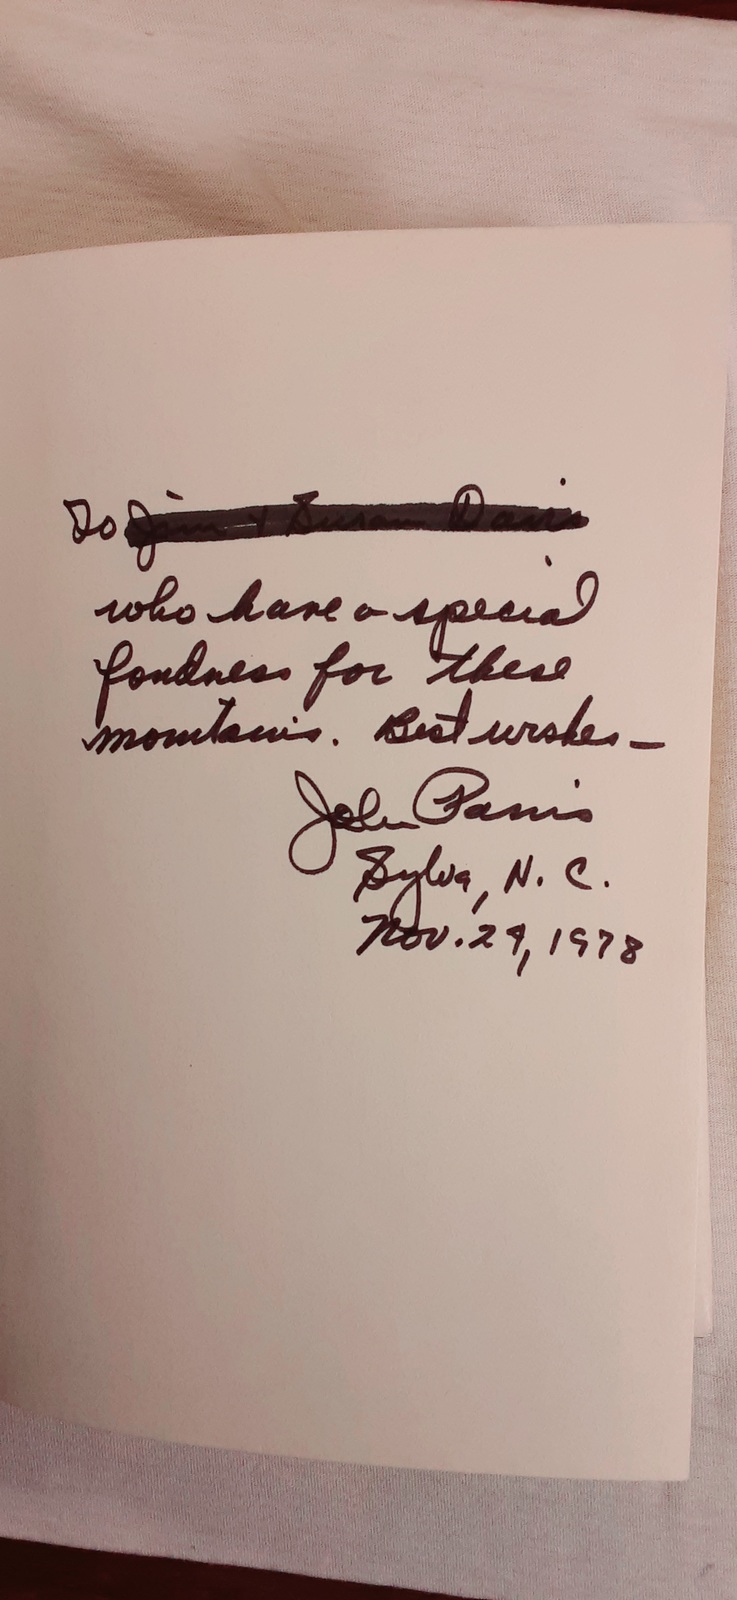 To Jim & Susan Davis
who have a special
fondness for these
mountains. Best wishes—
John Parris
Sylva, N. C.
Nov. 29, 1978